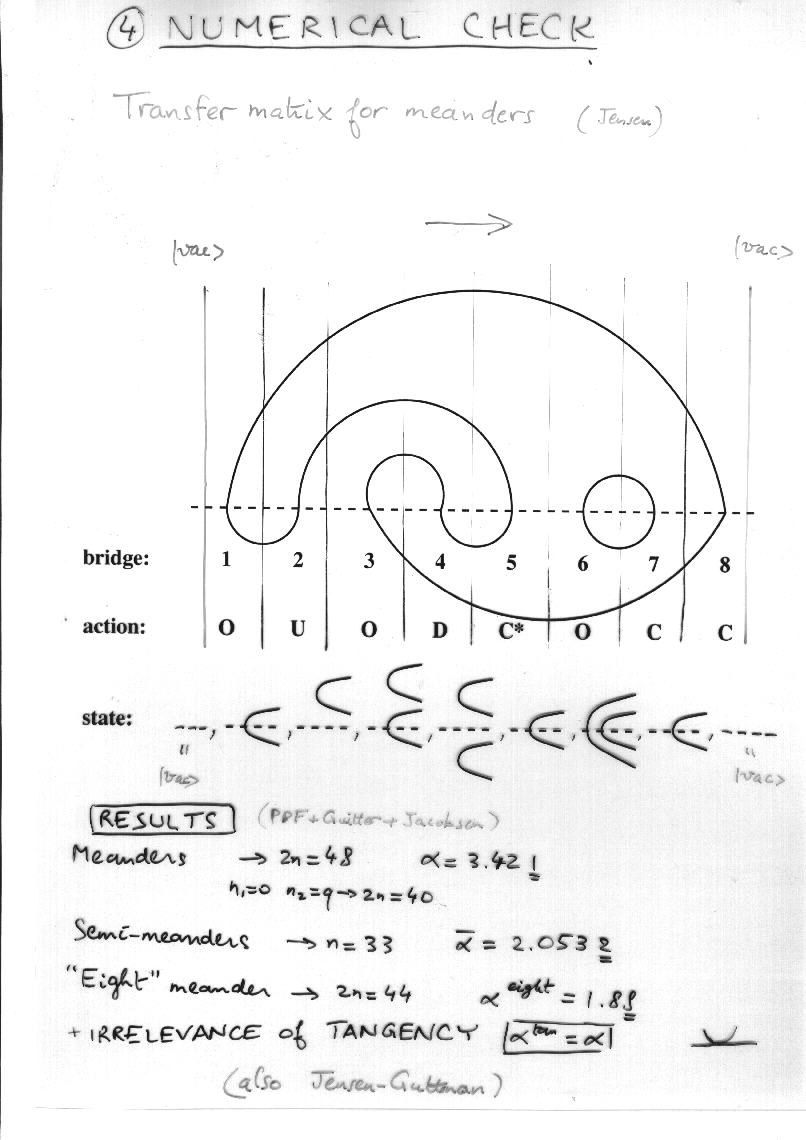 ④ NUMERICAL CHECK
Transfer matrix for meanders (Jensen)
|vac> |vac>
bridge: 1 2 3 4 5 6 7 8
action: O U O D C* O C C
state: , , , , , , , ,
|vac> |vac>
RESULTS (PDF + Guitter + Jacobsen)
Meanders → 2n=48 α = 3.421
n₁=0 n₂=q → 2n=40
Semi-meanders → n=33 ᾱ = 2.0532
"Eight" meander → 2n=44 α^eight = 1.89
+ IRRELEVANCE of TANGENCY α^tan = α
(also Jensen-Guttman)